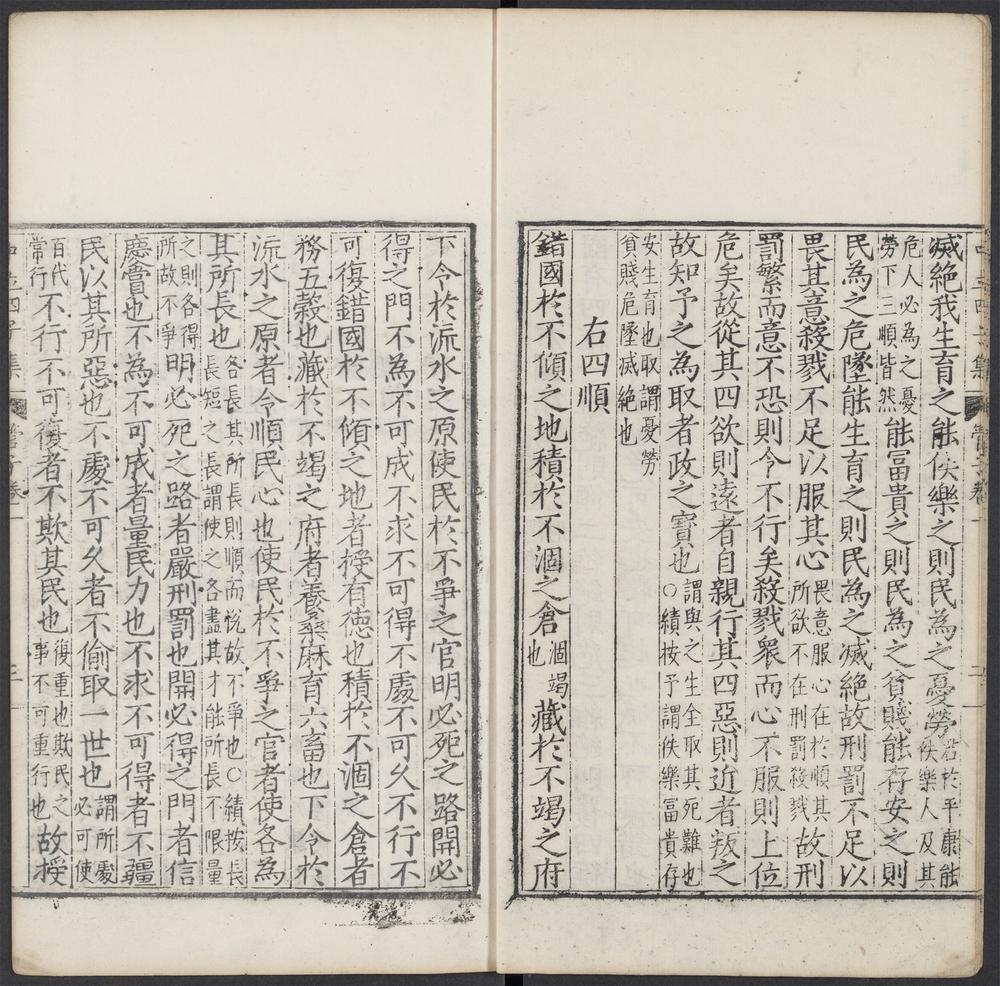 滅絶我生育之能佚樂之則民為之憂勞若於平康能佚樂人及其
危人必為之憂勞下三順皆然能富貴之則民為之貧賤能存安之則
民為之危墜能生育之則民為之滅絶故刑罰不足以
畏其意殺戮不足以服其心畏意服心在於順其所欲不在刑罰殺戮故刑
罰繁而意不恐則令不行矣殺戮衆而心不服則上位
危矣故從其四欲則遠者自親行其四惡則近者叛之
故知予之為取者政之寶也謂與之生全取其死難也○績按予謂佚樂富貴存
安生育也取謂憂勞貧賤危墜滅絶也
右四順
錯國於不傾之地積於不涸之倉涸竭也藏於不竭之府
下令於流水之原使民於不爭之官明必死之路開必
得之門不為不可成不求不可得不處不可久不行不
可復錯國於不傾之地者授有德也積於不涸之倉者
務五穀也藏於不竭之府者養桑麻育六畜也下令於
流水之原者令順民心也使民於不爭之官者使各為
其所長也各長其所長則順而悅故不爭也○績按長長短之長謂使之各盡其才能所長不限量
之則各得所故不爭明必死之路者嚴刑罰也開必得之門者信
慶賞也不為不可成者量民力也不求不可得者不彊
民以其所惡也不處不可久者不偷取一世也謂所處必可使
百代常行不行不可復者不欺其民也復重也欺民之事不可重行也故授